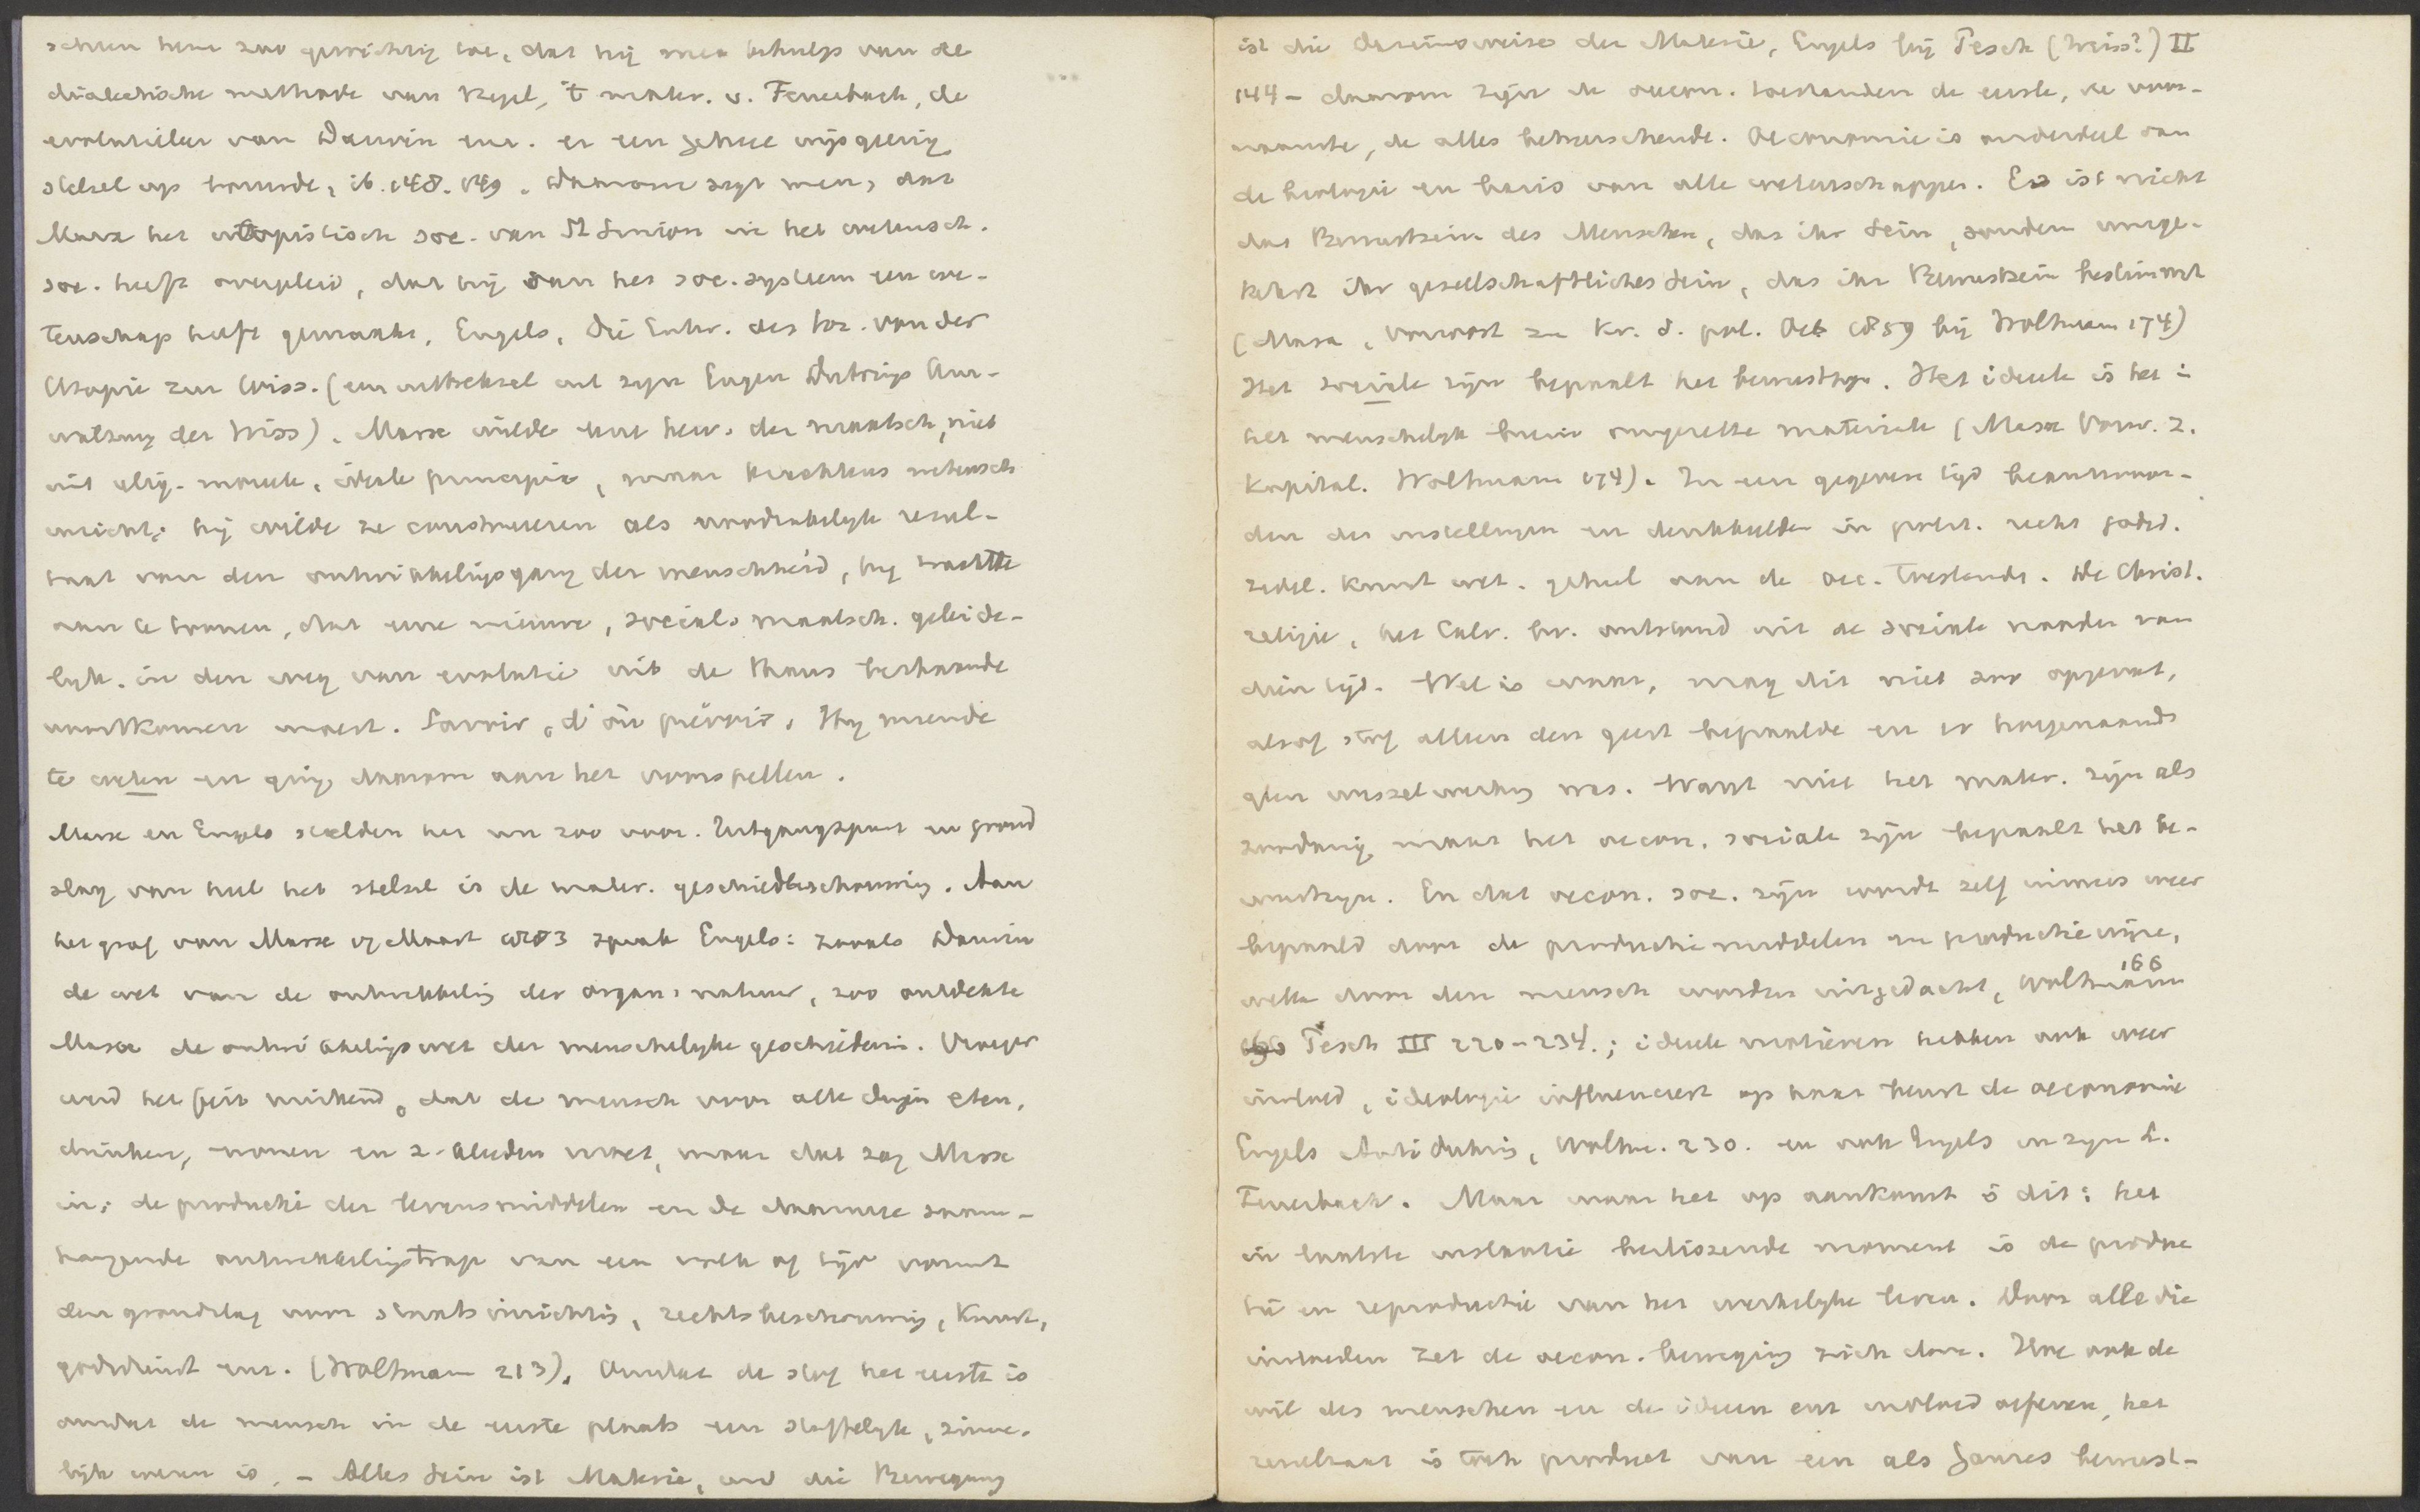 scheen hem zoo gewichtig toe, dat hij met behulp van de
dialectische methode van Hegel, 't mater. v. Feuerbach, de
evolutieleer van Darwin enz. er een geheel wijsgeerig
stelsel op bouwde, ib. 148. 149. Daarom zegt men, dat
Marx het utopistisch soc. van St Simon in het wetensch.
soc. heeft overgeleid, dat hij van het soc. systeem een we-
tenschap heeft gemaakt, Engels, Die Entw. des Soz. von der
Utopie zur Wiss. (een uittreksel uit zijn Eugen Dührings Um-
wälzung der Wiss). Marx wilde eene herv. der maatsch, niet
uit relig. moreele, ideale principia, maar krachtens wetensch
inzicht; hij wilde ze construeeren als noodzakelijk resul-
taat van den ontwikkelingsgang der menschheid, hij trachtte
aan te toonen, dat eene nieuwe, sociale maatsch. geleide-
lijk in den weg van evolutie uit de thans bestaande
voortkomen moest. Savoir, c'est prévoir. Hij meende
te weten en ging daarom aan het voorspellen.
Marx en Engels stelden het nu zoo voor. Uitgangspunt en grond
slag van heel het stelsel is de mater. geschiedbeschouwing. Aan
het graf van Marx 17 Maart 1883 sprak Engels: zooals Darwin
de wet van de ontwikkeling der organ. natuur, zoo ontdekte
Marx de ontwikkelingswet der menschelijke geschiedenis. Vroeger
werd het feit miskend, dat de mensch voor alle dingen eten,
drinken, wonen en z. kleeden moet, maar dat zag Marx
in; de productie der levensmiddelen en de daarmee saam-
hangende ontwikkelingstrap van een volk of tijd vormt
den grondslag voor staatsinrichting, rechtsbeschouwing, kunst,
godsdienst enz. (Woltmann 213). Omdat de stof het eerste is
omdat de mensch in de eerste plaats een stoffelijk, zinne-
lijk wezen is. – Alles Sein ist Materie, und die Bewegung
ist die Daseinsweise der Materie, Engels bij Pesch (Weiss?) II
144 – daarom zijn de oecon. toestanden de eerste, de voor-
naamste, de alles beheerschende. Oeconomie is onderdeel van
de biologie en basis van alle wetenschappen. Es ist nicht
das Bewustsein des Menschen, das ihr Sein, sondern umge-
kehrt ihr gesellschaftliches Sein, das ihr Bewustsein bestimmt
(Marx, Vorwort zu Kr. d. pol. Oek 1859 bij Woltmann 174)
Het sociale zijn bepaalt het bewustzijn. Het ideele is het i
het menschelijk brein omgezette materieele (Marx Vorw. z.
Kapital. Woltmann 174). In een gegeven tijd beantwoor-
den der instellingen en denkbeelden in polit. recht godsd.
zedel. kunst wet. geheel aan de oec. toestanden. De Christ.
religie, het Calv. bv. ontstond uit de sociale nooden van
dien tijd. Wel is waar, mag dit niet zoo opgevat,
alsof stof alleen den geest bepaalde en er hoegenaamd
geen wisselwerking was. Want niet het mater. zijn als
zoodanig maar het oecon. sociale zijn bepaalt het be-
wustzijn. En dat oecon. soc. zijn wordt zelf immers weer
bepaald door de productiemiddelen en productiewijze,
welke door den mensch worden uitgedacht, Woltmann 166
Pesch III 220–234.; ideele motieven hebben ook weer
invloed, ideologie influenceert op haar beurt de oeconomie
Engels Antidühring, Woltm. 230. en ook Engels in zijn L.
Feuerbach. Maar waar het op aankomt is dit: het
in laatste instantie beslissende moment is de produc
tie en reproductie van het werkelijke leven. Door alle die
invloeden zet de oecon. beweging zich door. Hoe ook de
wil des menschen en de ideeen enz invloed oefenen, het
resultaat is toch product van een als Ganzes bewust-